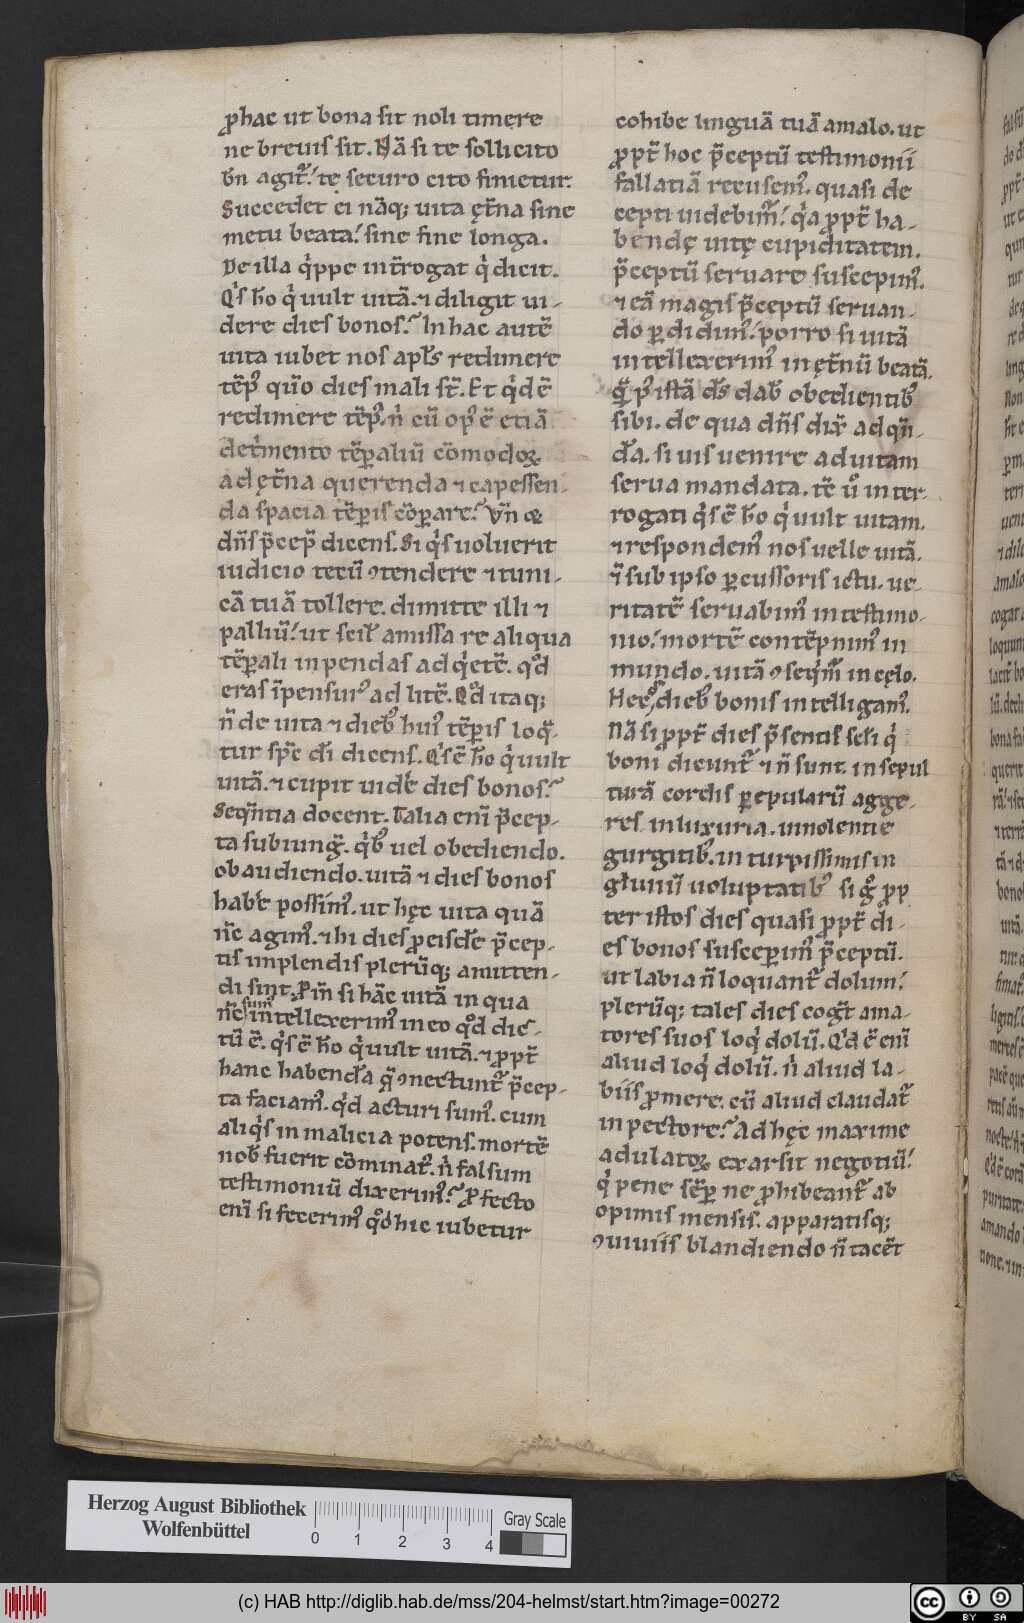 ꝓhac ut bona sit noli timere
ne breuis sit. Nā si te sollicito
bn̄ agit᷒. te securo cito finietur.
Succedet ei nāq; uita ęt̄na sine
metu beata. sine fine longa.
De illa q̇ppe int̄rogat q̇ dicit.
Q̇s ħo q̇ uult uitā. ⁊ diligit ui-
dere dies bonos. In hac autē
uita iubet nos apl̄s redimere
tēp᷒ qūo dies mali st̄. Et q̇d ē
redimere tēp᷒. ṅ cū op᷒ ē etiā
det̍mento tēꝑaliū cōmodoꝝ
ad ęt̄na querenda ⁊ capessen-
da spacia tēꝑis cōꝑare. Vn̄ ⁊
dn̄s p̄cep̄ dicens. Si q̇s uoluerit
iudicio tecū ꝯtendere ⁊ tuni-
cā tuā tollere. dimitte illi ⁊
palliū. ut scil̄ amissa re aliqua
tēꝑali inpendas ad q̇etē. qd̄
eras īpensur᷒ ad litē. Qd̄ itaq;
n̄ de uita ⁊ dieb᷒ hui᷒ tēꝑis loq̄-
tur sp̄c dī dicens. Q̇s ē ħo q̇ uult
uitā. ⁊ cupit uidē dies bonos.
Seq̄ntia docent. Talia enī p̄cep-
ta subiunḡ. q̇b᷒ uel obediendo.
obaudiendo. uitā ⁊ dies bonos
habē possim᷒. ut hęc uita quā
nc̄ agim᷒. ⁊ hi dies ꝓ eisdē p̄cep-
tis implendis plerūq; amitten-
di sint. Pm̄ si hāc uitā in qua
nc̄ sum᷒ intellexerim᷒ in eo qd̄ dic-
tū ē. q̇s ē ħo q̇ uult uitā. ⁊ ꝓpt̄
hanc habendā q̄ ꝯnectunt᷒ p̄cep-
ta faciam᷒. q̇d acturi sum᷒. cum
aliq̇s in malicia potens. mortē
nob᷒ fuerit cōminat᷒. ṅ falsum
testimoniū dixerim᷒. ꝓfecto
enī si fecerim᷒ qd̄ hic iubetur
cohibe linguā tuā a malo. ut
ꝓpt̄ hoc p̄ceptū testimonii
fallatiā recusem᷒. quasi de
cepti uidebim᷒. q̇a ꝓpt̄ ha-
bendę uitę cupiditatem.
p̄ceptū seruare suscepim᷒.
⁊ eā magis p̄ceptū seruan-
do ꝑdidim᷒. porro si uitā
intellexerim᷒ in ęt̄nū beatā.
q̄ p᷒ istā ds̄ dab̄ obedientib᷒
sibi. de qua dn̄s dix̄ ad q̄n-
dā. si uis uenire ad uitam
serua mandata. tē u̇ inter-
rogati q̇s ē ħo q̇ uult uitam.
⁊ respondem᷒ nos uelle uitā.
⁊ sub ipso ꝑcussoris ictu. ue-
ritatē seruabim᷒ in testimo-
nio. mortē contēpnim᷒ in
mundo. uitā ꝯseq̇m᷒ in cęlo.
Hec ⁊ dieb᷒ bonis intelligam᷒.
Nā si ꝓpt̄ dies p̄sentis sc̄li q̇
boni dicunt᷒ ⁊ n̄ sunt. in sepul
turā cordis ꝑ epularū agge-
res in luxuria. uinolentie
gurgitib᷒. in turpissimis in
gluuiū uoluptatib᷒ si g̊ ꝓp
ter istos dies quasi ꝓpt̄ di-
es bonos susceperim᷒ p̄ceptū.
ut labia n̄ loquant᷒ dolum.
plerūq; tales dies cog̅t ama-
tores suos loq̇ dolū. Q̇d ē enī
aliud loq̇ dolū. ṅ aliud la-
biis ꝓmere. cū aliud claudat᷒
in pectore. Ad hęc maxime
adulatoꝝ exarsit negotiū.
q̇ pene sēꝑ ne ꝓhibeant᷒ ab
opimis mensis. apparatisq;
ꝯuiuiis blandiendo n̄ tacēt
Herzog August Bibliothek
Wolfenbüttel
0 1 2 3 4
Gray Scale
(c) HAB http://diglib.hab.de/mss/204-helmst/start.htm?image=00272
cc BY SA